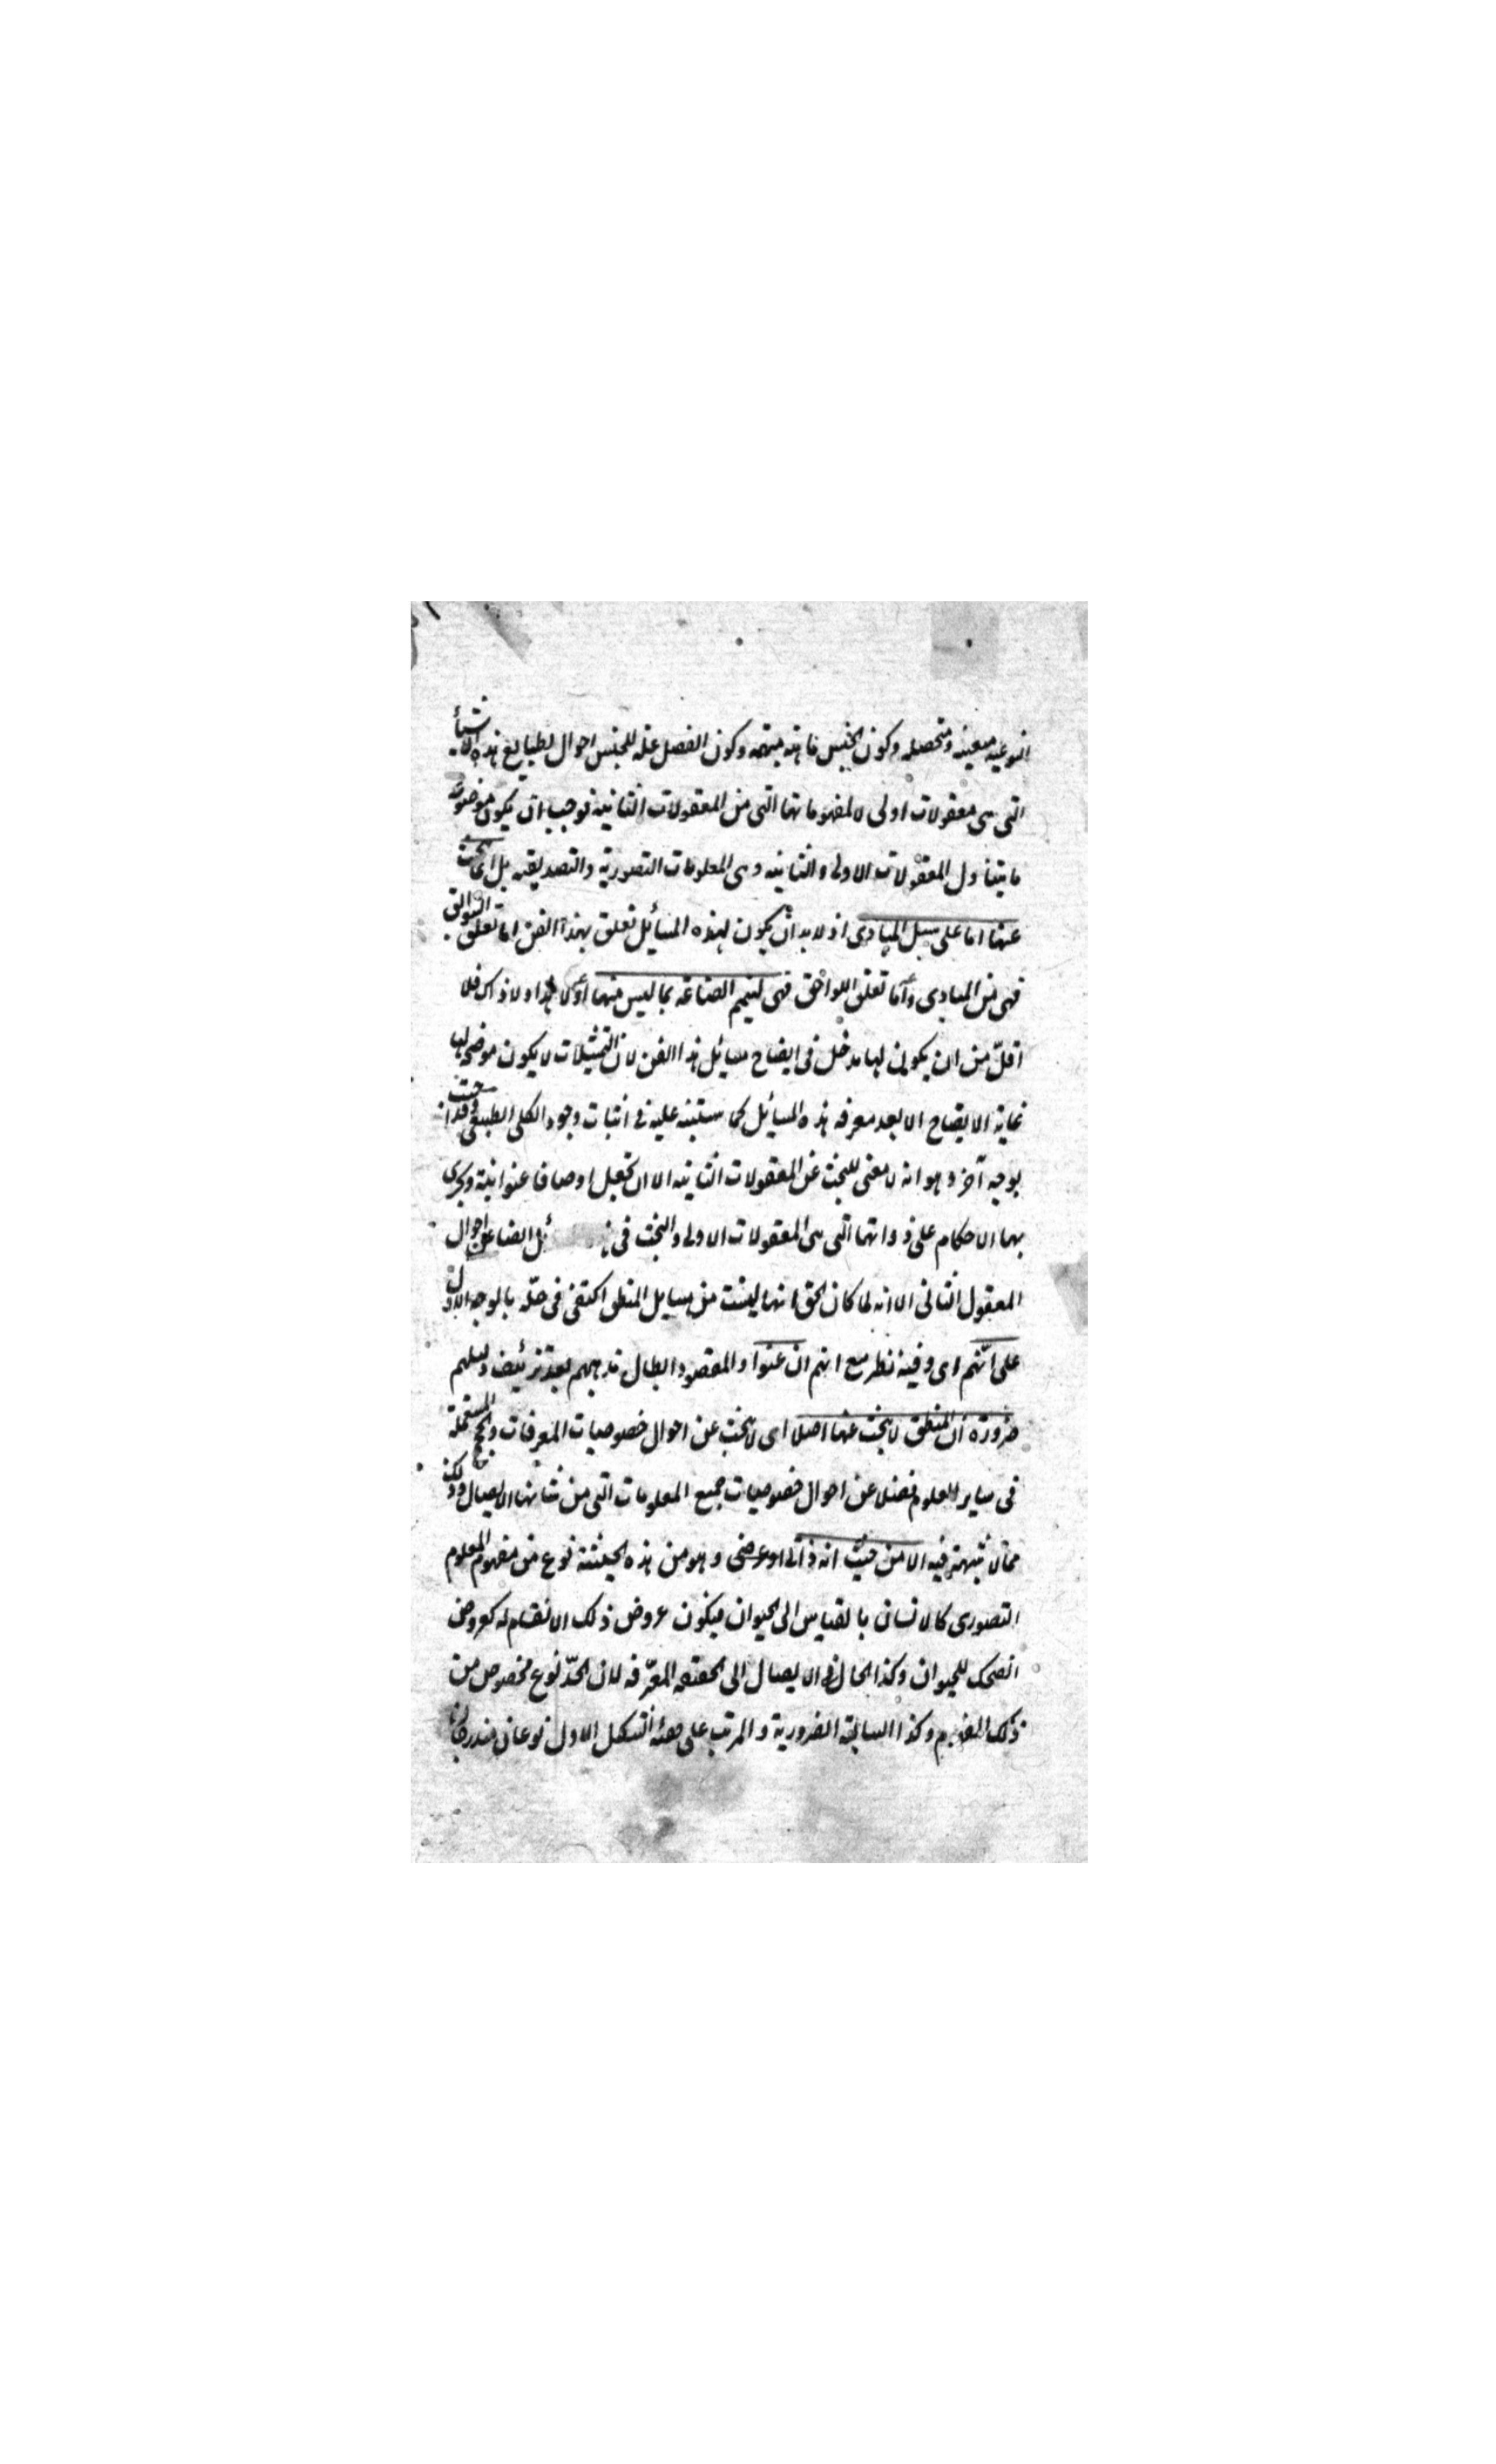 النوعيه معينه ومتحصله وكون الجنس ماهيه مبهمه وكون الفصل علة للجنس احوال لطبايع هذه الاشيأ
التى هى معقولات اولى لا لمفهوماتها التى من المعقولات الثانيه فوجب ان يكون موضوعه
ما يتناول المعقولات الاولى والثانيه وهى المعلومات التصوريه والتصديقيه بل البحث
عنها اما على سبيل المبادى اذ لا بد ان يكون لهذه المسائل تعلق بهذا الفن اما تعلق السوابق
فهى من المبادى واما تعلق اللواحق فهى لتتميم الصناعه بما ليس منها اولا هذا ولا ذاك فلا
اقل من ان يكون لها مدخل فى ايضاح مسايل هذا الفن لان التمثيلات لا يكون موضحه لها
غاية الايضاح الا بعد معرفه هذه المسايل كما ستنبه عليه فى اثبات وجود الكلى الطبيعى
بوجه آخر وهو انه لا معنى للبحث عن المعقولات الثانيه الا ان تجعل اوصافا عنوانية ويجرى
بها الاحكام على ذواتها التى هى المعقولات الاولى والبحث فى ايضا عن احوال
المعقول الثانى الا انه لما كان الحق انها ليست من مسايل المنطق اكتفى فى حله بالوجه الاول
على انهم اى وفيه نظر مع انهم ان عنوا والمقصود ابطال مذهبهم بعد تزييف دليلهم
ضرورة ان المنطقى لا يبحث عنها اصلا اى لا يبحث عن احوال خصوصيات المعرفات والحجج المستعملة
فى ساير العلوم فضلا عن احوال خصوصيات جميع المعلومات التى من شانها الايصال وذلك
مما لا شبهة فيه الا من حيث انه ذاتى او عرضى وهو من هذه الحيثية نوع من مفهوم المعلوم
التصورى كالانسان بالقياس الى الحيوان فيكون عروض ذلك الانقسام له كعروض
الضحك للحيوان وكذا الحال فى الايصال الى الحقيقه المعرفه لان الحد نوع مخصوص من
ذلك المفهوم وكذا السالبة الضرورية والمرتب على هيئه الشكل الاول نوعان مندرجان